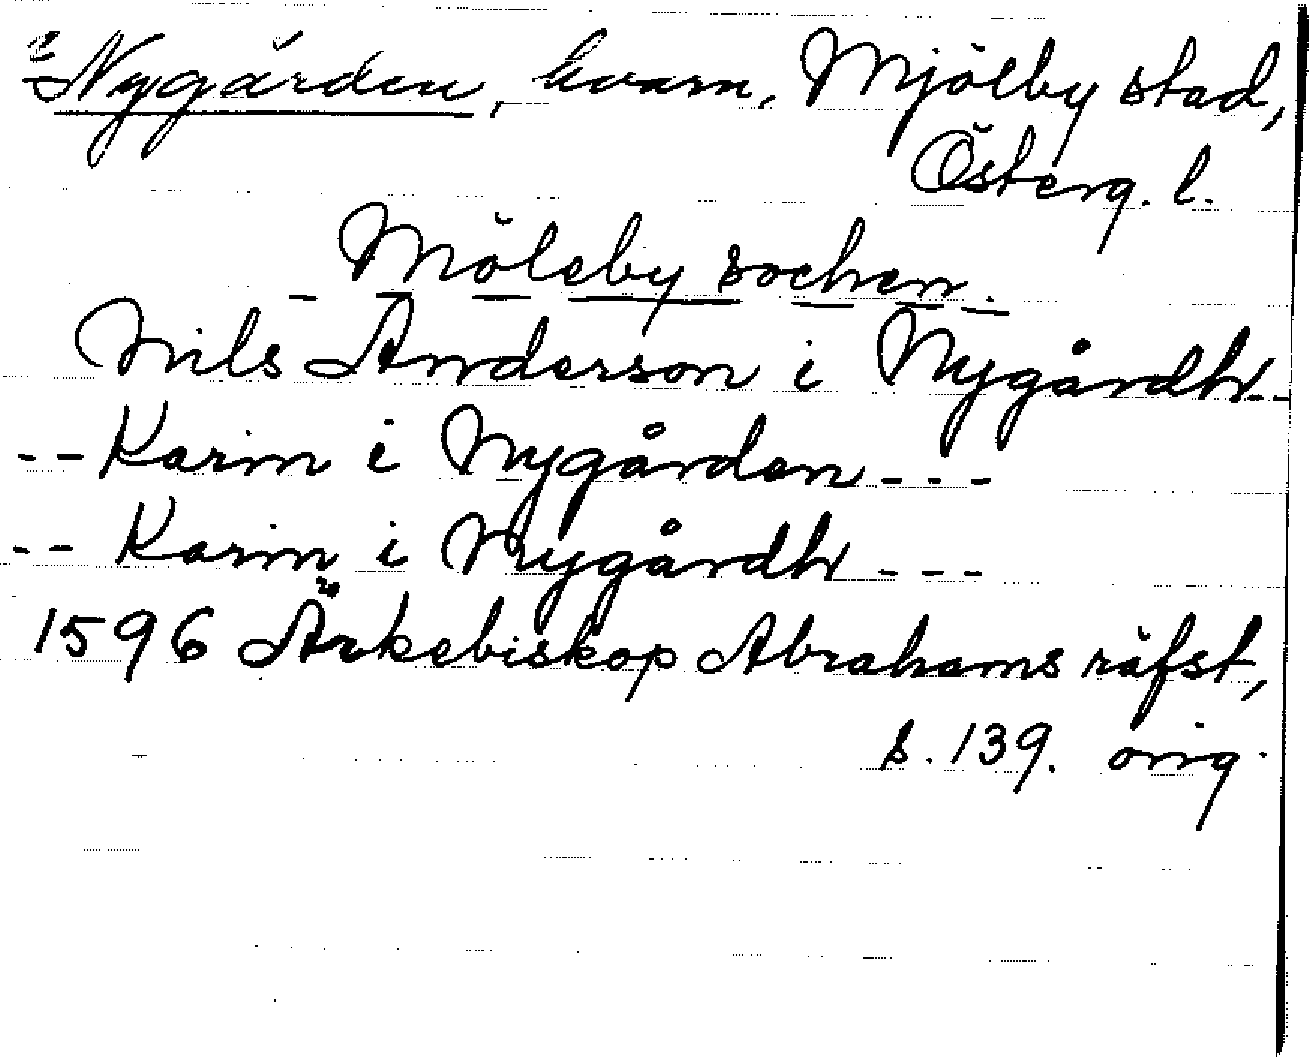 ? Nygården, kvarn, Mjölby stad,
Österg. l.
Möleby sochen.
Nils Anderson i Nygårdh--
-- Karin i Nygården ---
-- Karin i Nygårdh ---
1596 Ärkebiskop Abrahams räfst,
s. 139. orig.